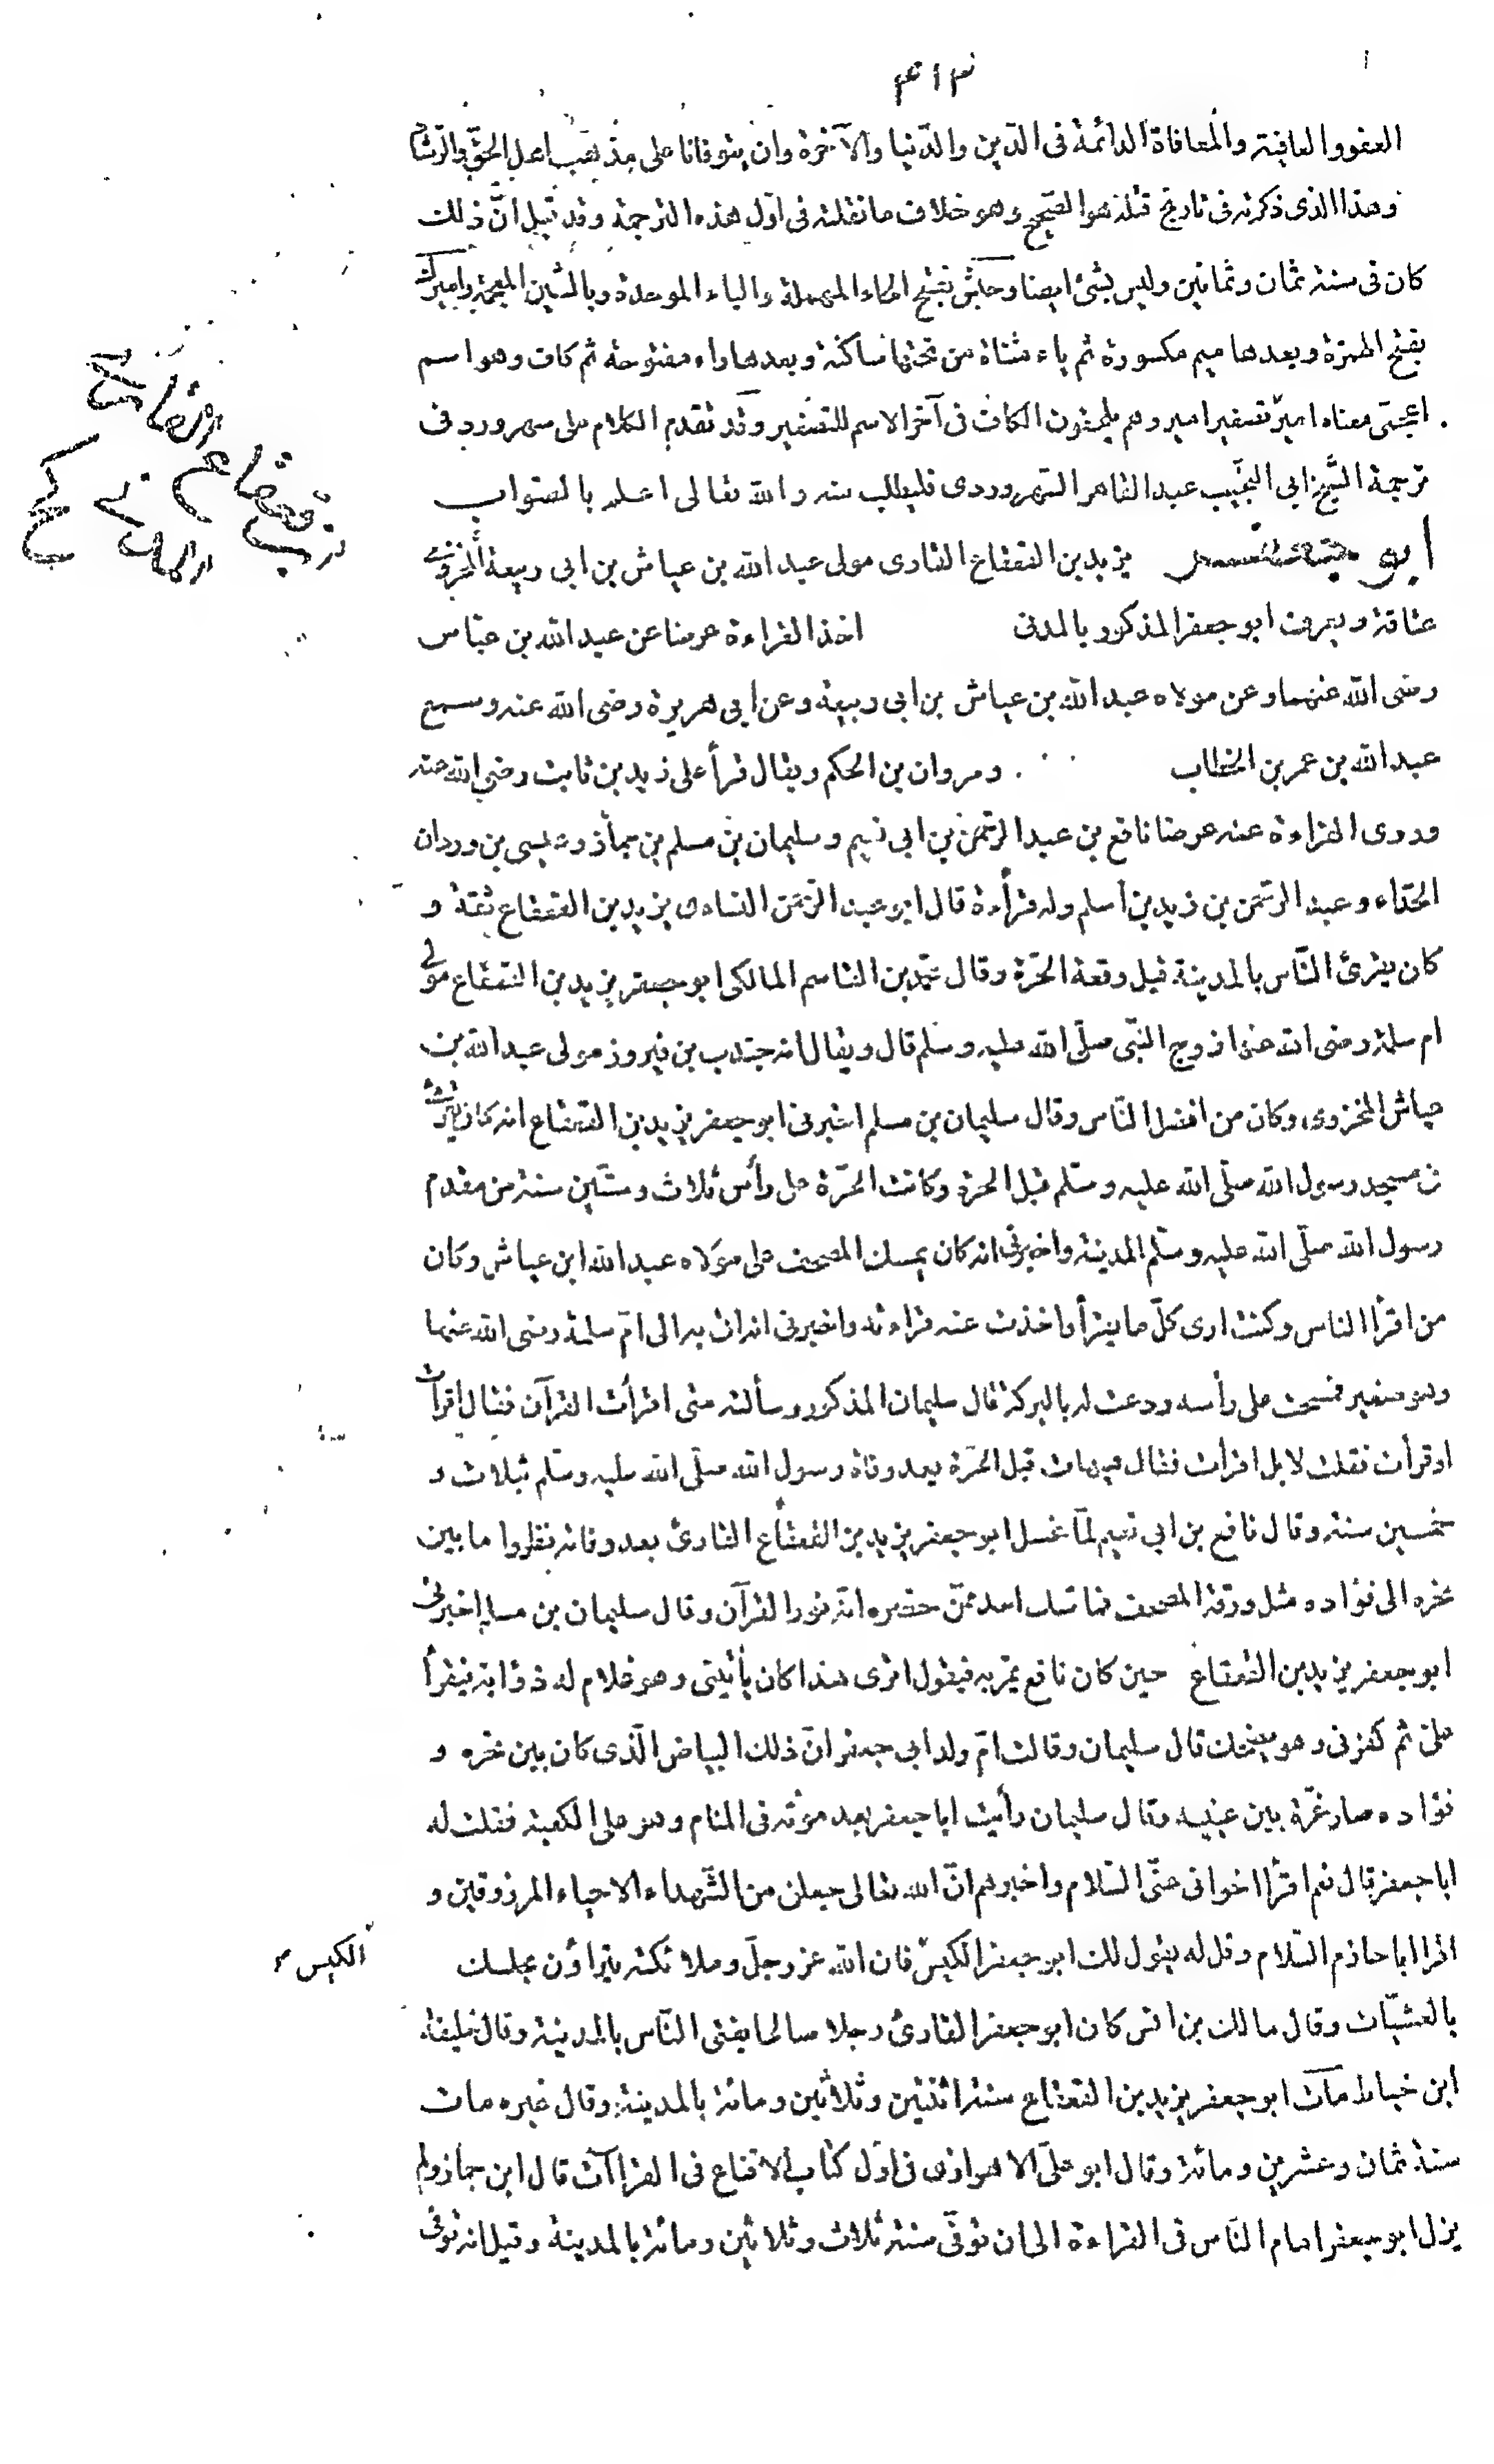 ٤١٣
العفو والعافية والمعافاة الدائمة فى الدّين والدّنيا والآخرة وان يتوفانا على مذهب اهل الحقّ والرّشاد
وهذا الذى ذكرته فى تاريخ قتله هو الصّحيح وهو خلاف ما نقلته فى اوّل هذه الترجمة وقد قيل انّ ذلك
كان فى سنة ثمان وثمانين وليس بشئ ايضا وحبش بفتح الحاء المهملة والباء الموحدة وبالشين المعجمة واميرك
بفتح الهمزة وبعدها ميم مكسورة ثم ياء مثناة من تحتها ساكنة وبعدها راء مفتوحة ثم كاف وهو اسم
اعجمىّ معناه امير تصغير امير وهم يلحقون الكاف فى آخر الاسم للتصغير وقد تقدم الكلام على سهرورد فى
ترجمة الشّيخ ابى النّجيب عبد القاهر السّهروردى فليطلب منه والله تعالى اعلم بالصّواب
ابو جعفر يزيد بن القعقاع القارى مولى عبد الله بن عياش بن ابى ربيعة المخزومى
عتاقة ويعرف ابو جعفر المذكور بالمدنى اخذ القراءة عرضا عن عبد الله بن عبّاس
رضى الله عنهما وعن مولاه عبد الله بن عياش بن ابى ربيعة وعن ابى هريرة رضى الله عنه وسمع
عبد الله بن عمر بن الخطاب ومروان بن الحكم ويقال قرأ على زيد بن ثابت رضى الله عنه
وروى القراءة عنه عرضا نافع بن عبد الرّحمن بن ابى نعيم وسليمان بن مسلم بن جمّاز وعيسى بن وردان
الحذّاء وعبد الرّحمن بن زيد بن أسلم وله قرأءة قال ابو عبد الرّحمن النساءى يزيد بن القعقاع ثقة و
كان يقرئ النّاس بالمدينة قبل وقعة الحرّة وقال محمّد بن القاسم المالكى ابو جعفر يزيد بن القعقاع مولى
ام سلمة رضى الله عنها زوج النبّى صلّى الله عليه وسلم قال ويقال انه جندب بن فيروز مولى عبد الله بن
عياش المخزومى وكان من افضل النّاس وقال سليمان بن مسلم اخبرنى ابو جعفر يزيد بن القعقاع انه كان يقرئ
فى مسجد رسول الله صلّى الله عليه وسلّم قبل الحرة وكانت الحرّة على رأس ثلاث وستّين سنة من مقدم
رسول الله صلّى الله عليه وسلّم المدينة واخبرنى انه كان يمسك المصحف على مولاه عبد الله ابن عياش وكان
من اقرأ الناس وكنت ارى كلّ ما يقرأ واخذت عنه قراءته واخبرنى انه اتى به الى امّ سلمة رضى الله عنها
وهو صغير فمسحت على رأسه ودعت له بالبركة قال سليمان المذكور وسألته متى اقرأت القرآن فقال أقرأت
او قرأت فقلت لا بل اقرأت فقال هيهات قبل الحرّة بعد وفاة رسول الله صلّى الله عليه وسلّم بثلاث و
خمسين سنة وقال نافع بن ابى نعيم لمّا غسل ابو جعفر يزيد بن القعقاع القارئ بعد وفاته نظروا ما بين
نحره الى فؤاده مثل ورقة المصحف فما شك احد ممّن حضره انّه نور القرآن وقال سليمان بن مسلم اخبرنى
ابو جعفر يزيد بن القعقاع حين كان نافع يمرّ به فيقول اترى هذا كان يأتينى وهو غلام له ذؤابة فيقرأ
علىّ ثم كفرنى وهو يضحك قال سليمان وقالت امّ ولد ابى جعفر انّ ذلك البياض الّذى كان بين نحره و
فؤاده صار غرّة بين عينيه وقال سليمان رأيت ابا جعفر بعد موته فى المنام وهو على الكعبة فقلت له
ابا جعفر قال نعم اقرأ اخوانى عنّى السّلام واخبرهم انّ الله تعالى جعلنى من الشّهداء الاحياء المرزوقين و
اقرا ابا حازم السّلام وقل له يقول لك ابو جعفر الكيس فان الله عزّ وجلّ وملائكته يتراؤن مجلسك
الكيس
بالعشيّات وقال مالك بن انس كان ابو جعفر القارئ رجلا صالحا يفتى النّاس بالمدينة وقال خليفة
ابن خياط مات ابو جعفر يزيد بن القعقاع سنة اثنتين وثلاثين ومائة بالمدينة وقال غيره مات
سنة ثمان وعشرين ومائة وقال ابو علىّ الاهوازى فى اوّل كتاب الاقناع فى القراآت قال ابن جماز ولم
يزل ابو جعفر امام النّاس فى القراءة الى ان توفّى سنة ثلاث وثلاثين ومائة بالمدينة وقيل انه توفى